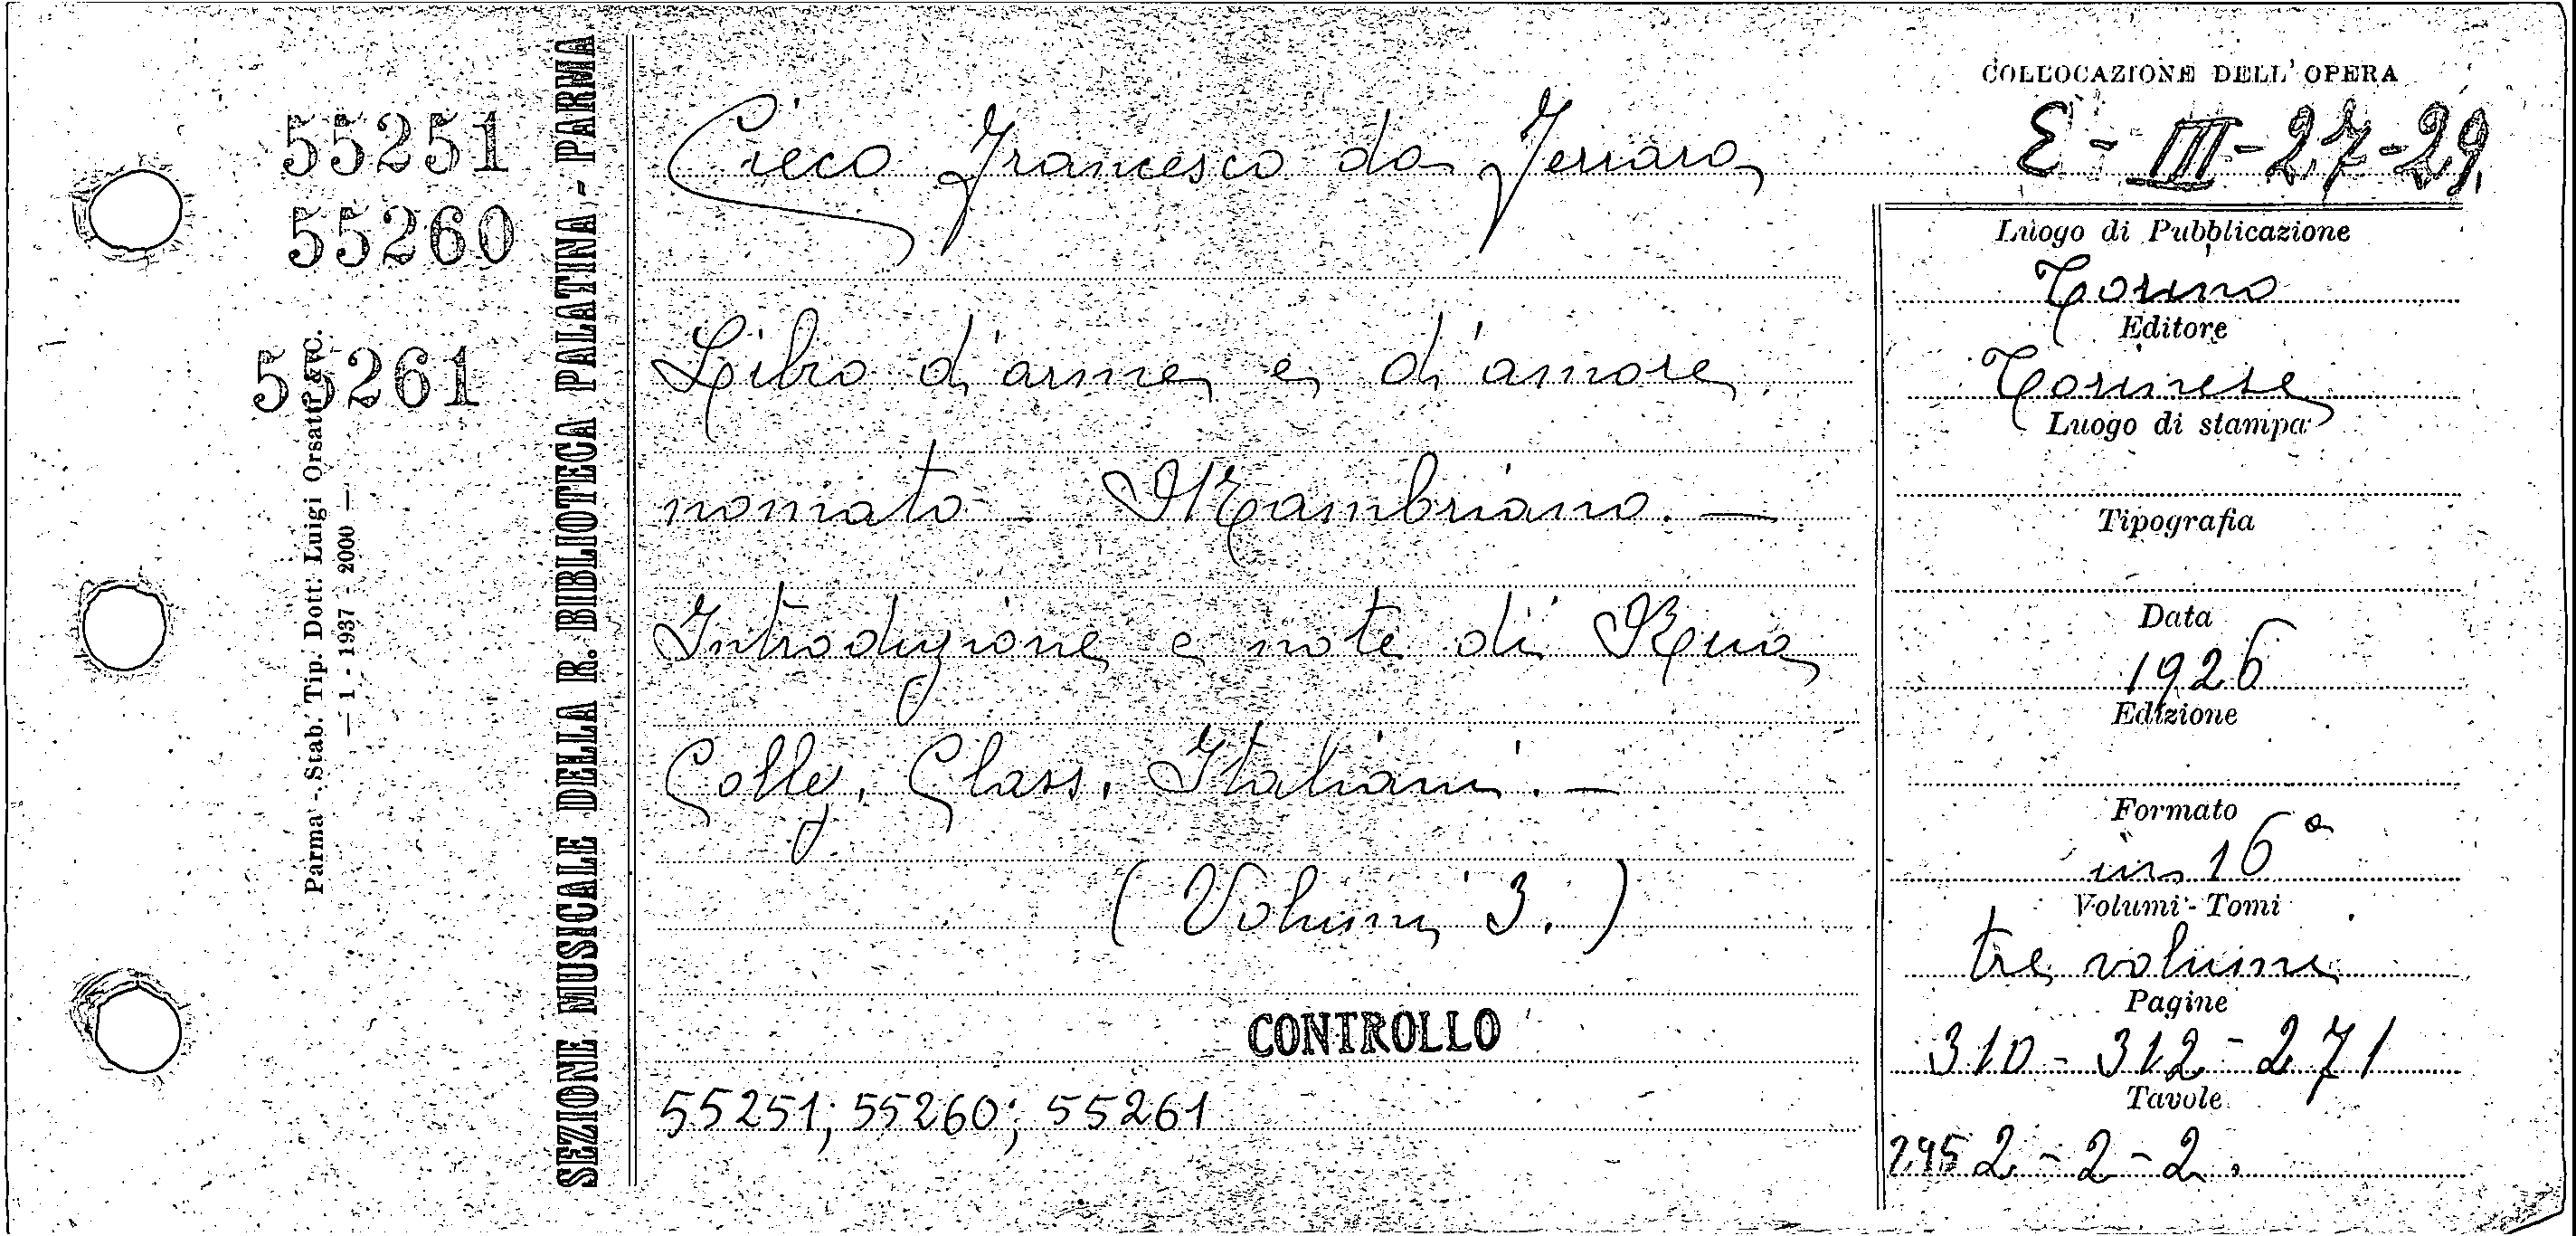 55251
55260
55261
Parma - Stab. Tip. Dott. Luigi Orsatti & C.
— 1 - 1937 - 2000 —
SEZIONE MUSICALE DELLA R. BIBLIOTECA PALATINA - PARMA
Cieco Francesco da Ferrara
Libro d'arme e d'amore
nomato Mambriano. —
Introduzione e note di Rua
Collez. Class. Italiani. —
(Volumi 3.)
CONTROLLO
55251; 55260; 55261
COLLOCAZIONE DELL' OPERA
E - III - 27 - 29.
Luogo di Pubblicazione
Torino
Editore
Torinese
Luogo di stampa
Tipografia
Data
1926
Edizione
Formato
in 16°
Volumi - Tomi
tre volumi
Pagine
310 - 312 - 271
Tavole
2 - 2 - 2.